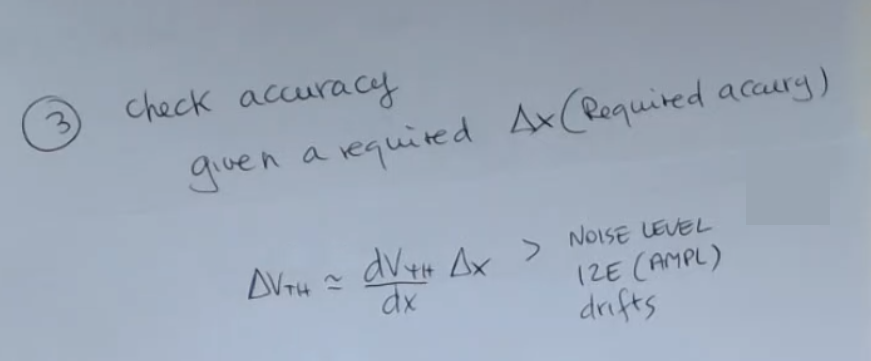 ③ check accuracy
given a required Δx (Required accury)
ΔV_TH ≃ dV_TH/dx Δx > NOISE LEVEL
I2E (AMPL)
drifts